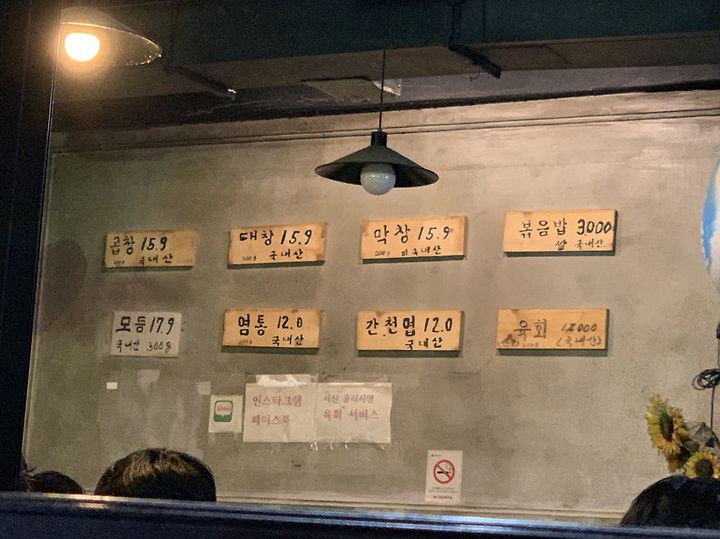 곱창 15.9
국내산
대창 15.9
국내산
막창 15.9
200g 미국내산
볶음밥 3000
쌀 국내산
모듬 17.9
국내산 300g
염통 12.0
국내산
간.천엽 12.0
국내산
육회 12000
(국내산)
인스타그램
페이스북
사진 올리시면
육회 서비스